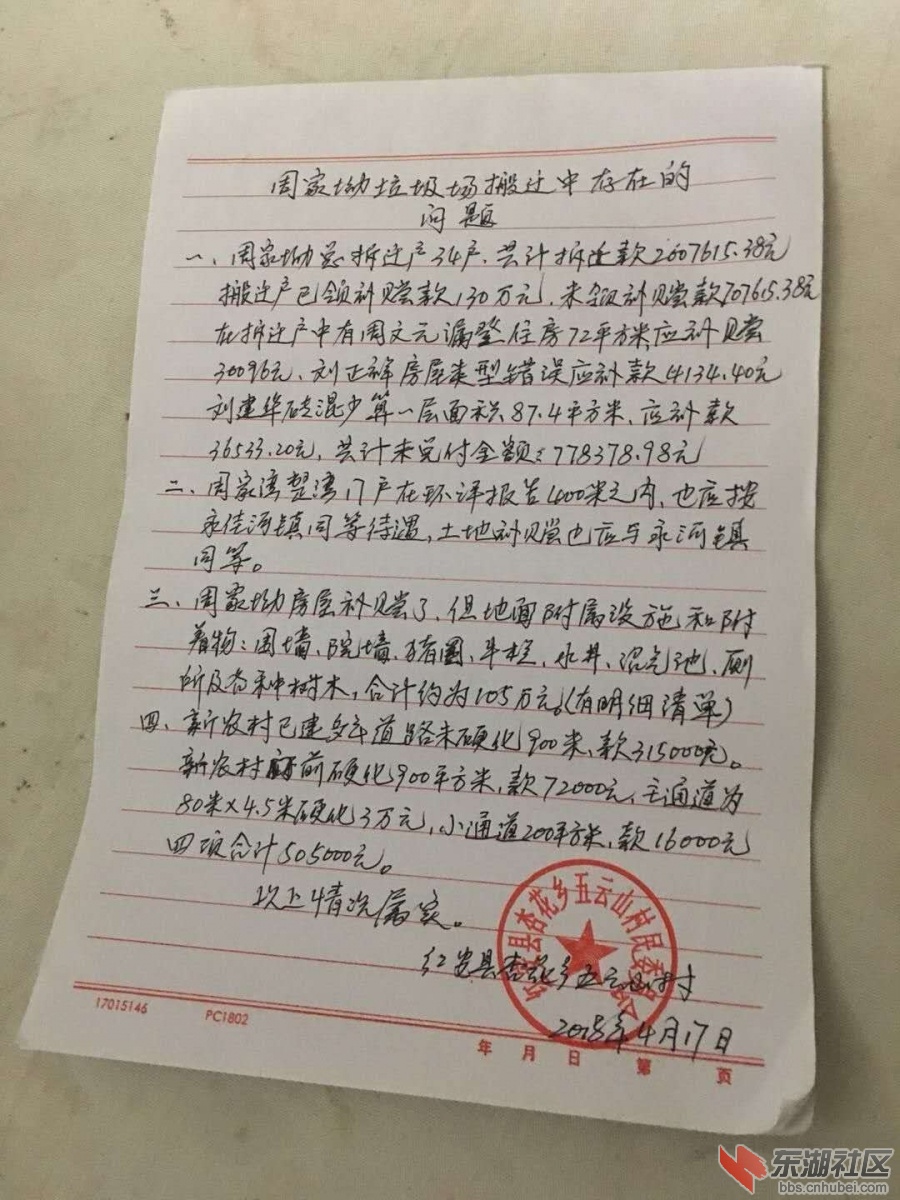 周家坳垃圾场搬迁中存在的
问题
一、周家坳总拆迁户34户,共计拆迁款2007615.38元
搬迁户已领补赔款130万元,未领补赔款707615.38元
在拆迁户中有周文元漏登住房72平方米应补赔
30096元、刘正祥房屋类型错误应补款4134.40元
刘建华砖混少算一层面积87.4平方米、应补款
36533.20元,共计未兑付金额:778378.98元
二、周家湾整湾17户在环评报告400米之内,也应按
永佳河镇同等待遇,土地补赔也应与永河镇
同等。
三、周家坳房屋补赔了,但地面附属设施和附
着物:围墙、院墙、猪圈、牛栏、水井、沼气池、厕
所及各种树木,合计约为105万元。(有明细清单)
四、新农村已建多年道路未硬化900米,款315000元。
新农村前硬化900平方米,款72000元,主通道为
80米×4.5米硬化3万元,小通道200平方米,款16000元
四项合计505000元。
以上情况属实。
红安县杏花乡五云山村民委员会
红安县杏花乡五云山村
2018年4月17日
17015146
PC1802
年 月 日 第 页
东湖社区
bbs.cnhubei.com